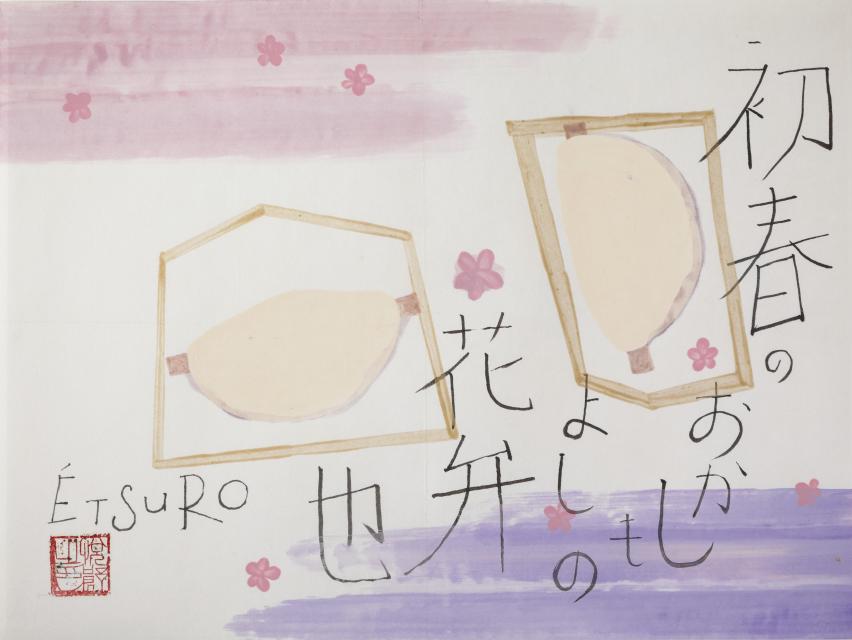 初春の
おかしも
よしの
花弁
也
ÉTSURO